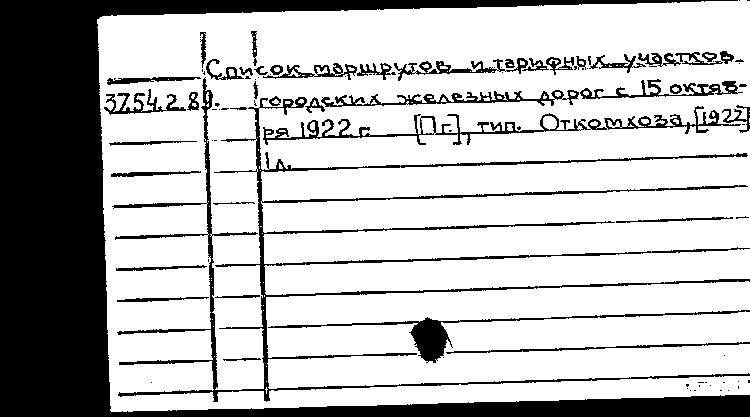 Список маршрутов и тарифных участков
37.54.2.89. городских железных дорог с 15 октяб-
ря 1922 г. [П г.], тип. Откомхоза, [1922]
1 л.